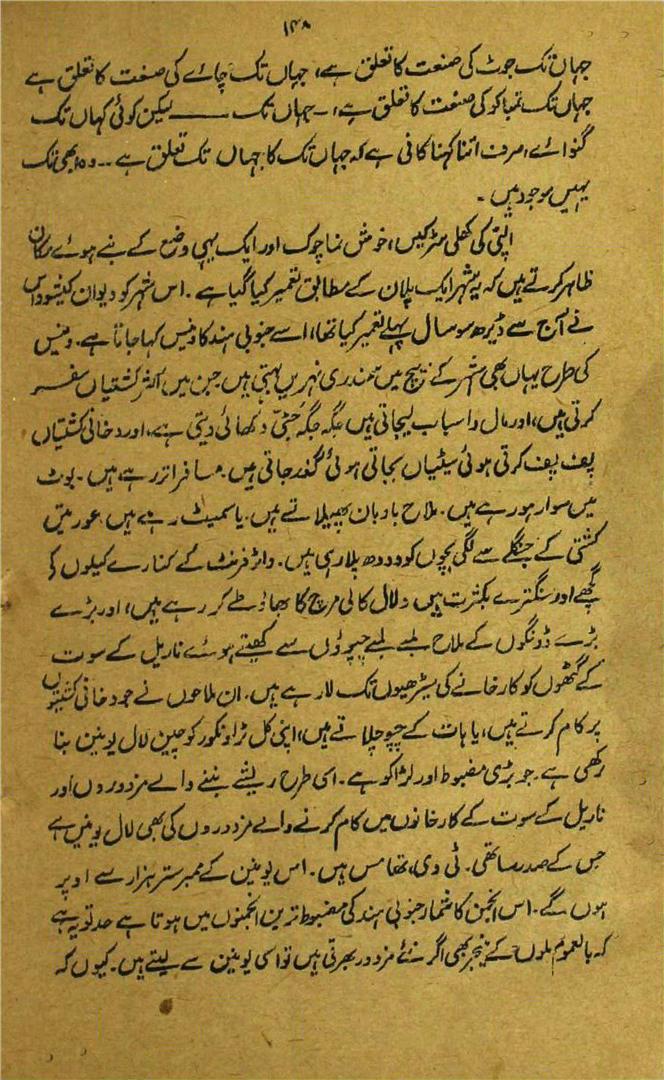 ۱۴۸
جہاں تک جوٹ کی صنعت کا تعلق ہے، جہاں تک چائے کی صنعت کا تعلق ہے
جہاں تک تمباکو کی صنعت کا تعلق ہے، ۔ جہاں تک ــــــ لیکن کوئی کہاں تک
گنوائے، صرف اتنا کہنا کافی ہے کہ جہاں تک کا جہاں تک تعلق ہے ۔۔ وہ ابھی تک
یہیں موجود ہیں ۔
الپی کی کھلی سڑکیں، خوش نما چوک اور ایک ہی وضع کے بنے ہوئے مکان
ظاہر کرتے ہیں کہ یہ شہر ایک پلان کے مطابق تعمیر کیا گیا ہے ۔ اس شہر کو دیوان کیشوداس
نے آج سے ڈیڑھ سو سال پہلے تعمیر کیا تھا، اسے جنوبی ہند کا وینس کہا جاتا ہے ۔ وینس
کی طرح یہاں بھی شہر کے بیچ میں سمندری نہریں بہتی ہیں جن میں اکثر کشتیاں سفر
کرتی ہیں، اور مال و اسباب لیجاتی ہیں جگہ جگہ جٹی دکھائی دیتی ہے، اور دخانی کشتیاں
پف پف کرتی ہوئی سیٹیاں بجاتی ہوئی گذر جاتی ہیں ۔ مسافر اتر رہے ہیں ۔ بوٹ
میں سوار ہو رہے ہیں ۔ ملاح بادبان پھیلاتے ہیں ۔ یا سمیٹ رہے ہیں عورتیں
کشتی کے جنگلے سے لگی بچوں کو دودھ پلا رہی ہیں ۔ واٹر فرنٹ کے کنارے کیلوں کے
گچھے اور سنگترے بکثرت ہیں دلال کالی مرچ کا بھاؤ طے کر رہے ہیں، اور بڑے
بڑے ڈونگوں کے ملاح لمبے لمبے چپوؤں سے کھیتے ہوئے ناریل کے سوت
کے گٹھوں کو کارخانے کی سیڑھیوں تک لا رہے ہیں ۔ ان ملاحوں نے جو دخانی کشتیوں
پر کام کرتے ہیں، یا ہات کے چپو چلاتے ہیں، اپنی کل ٹراونکور کوچین لال یونین بنا
رکھی ہے ۔ جو بڑی مضبوط اور لڑاکو ہے ۔ اسی طرح ریشے بننے والے مزدوروں اور
ناریل کے سوت کے کارخانوں میں کام کرنے والے مزدوروں کی بھی لال یونین ہے
جس کے صدر ساتھی ۔ ٹی وی، تھامس ہیں ۔ اس یونین کے ممبر ستر ہزار سے اوپر
ہوں گے ۔ اس انجمن کا شمار جنوبی ہند کی مضبوط ترین انجمنوں میں ہوتا ہے حد تو یہ ہے
کہ بالعموم ملوں کے منیجر بھی اگر نئے مزدور بھرتی ہیں تو اسی یونین سے لیتے ہیں ۔ کیوں کہ